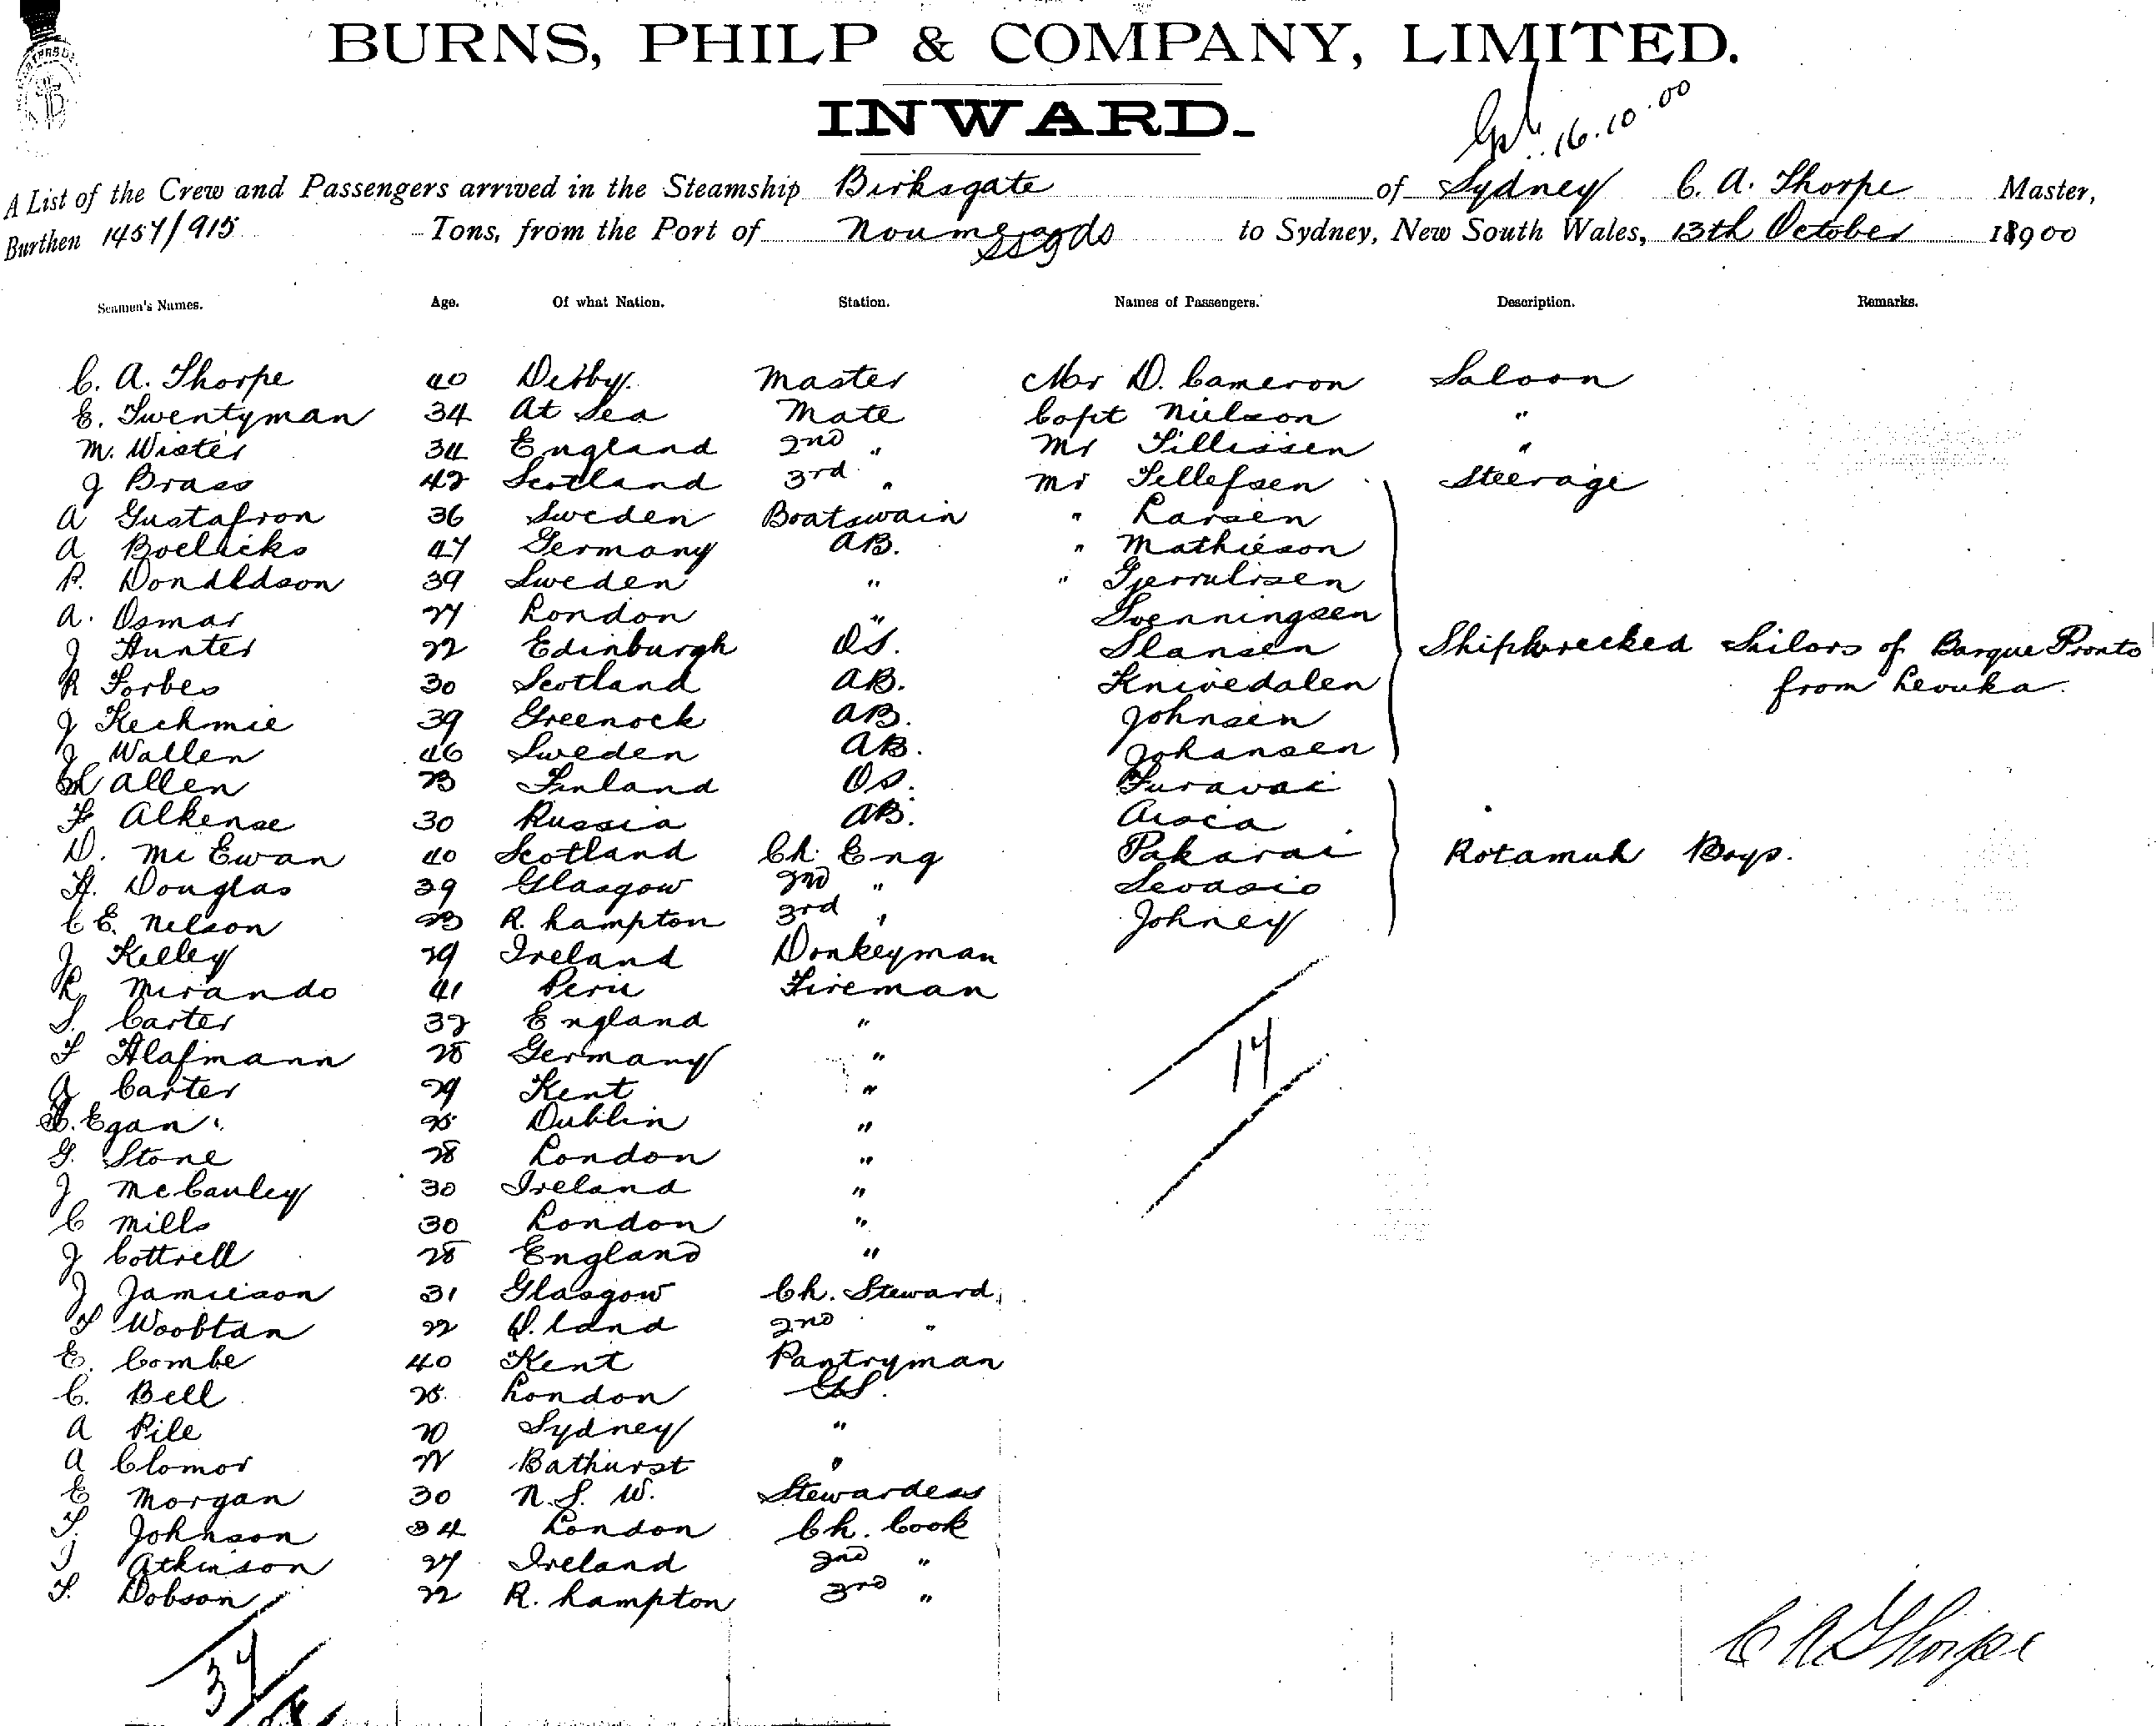 BURNS, PHILP & COMPANY, LIMITED.
INWARD.
16.10.00
A List of the Crew and Passengers arrived in the Steamship Birksgate of Sydney C. A. Thorpe Master,
Burthen 1457/915 Tons, from the Port of to Sydney, New South Wales, 13th October 18900
Seamen's Names. Age. Of what Nation. Station. Names of Passengers. Description. Remarks.
C. A. Thorpe 40 Derby Master Mr D. Cameron Saloon
E. Twentyman 34 At Sea Mate Capt Nielson "
M. Wister 34 England 2nd " Mr Tillissen "
J Brass 42 Scotland 3rd " Mr Tellefsen Steerage
A Gustafson 36 Sweden Boatswain " Larsen
A 47 Germany AB. " Mathieson
P. Donaldson 39 Sweden " "
A. Osmar 27 London " Svenningsen
J Hunter 22 Edinburgh OS. Slansen Shipwrecked Sailors of Barque Pronto
R Forbes 30 Scotland AB. Knivedalen from Levuka.
J Kechmie 39 Greenock AB. Johnsen
J Wallen 46 Sweden AB. Johansen
Allen 23 Finland OS. Furavai
F Alkense 30 Russia AB. Aisia
D. McEwan 40 Scotland Ch. Eng Pakarai Rotamuh Boys.
H. Douglas 39 Glasgow 2nd " Sevasio
C E. Nelson 23 R. hampton 3rd " Johney
J Kelley 29 Ireland Donkeyman
R Mirando 41 Peru Fireman
S. Carter 32 England "
F Hlafmann 28 Germany "
A Carter 29 Kent "
Egan 25 Dublin "
G. Stone 28 London "
J McCauley 30 Ireland "
C Mills 30 London "
J Cottrell 28 England "
J Jamieson 31 Glasgow Ch. Steward
T Woobtan 22 Q. land 2nd "
E. Combe 40 Kent Pantryman
C. Bell 25 London GS.
A Pile 20 Sydney "
A Clomor 22 Bathurst "
E Morgan 30 N. S. W. Stewardess
T. Johnson 34 London Ch. Cook
J Atkinson 27 Ireland 2nd "
T. Dobson 22 R. hampton 3rd "
17
37
C A Thorpe